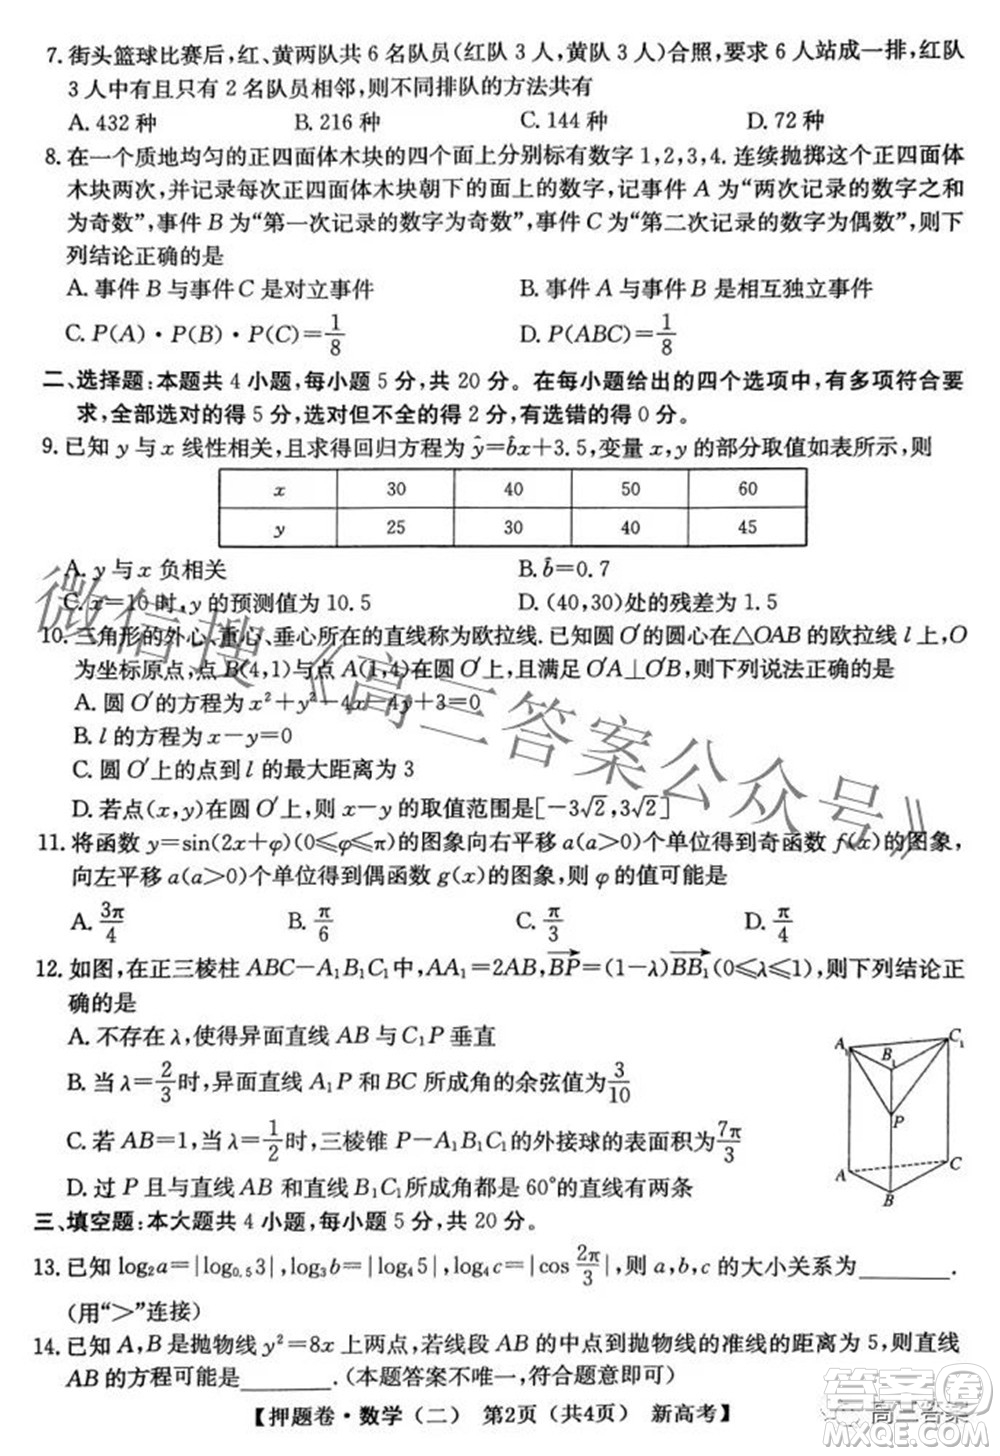 7. 街头篮球比赛后,红、黄两队共 6 名队员(红队 3 人,黄队 3 人)合照,要求 6 人站成一排,红队
3 人中有且只有 2 名队员相邻,则不同排队的方法共有
A. 432 种 B. 216 种 C. 144 种 D. 72 种
8. 在一个质地均匀的正四面体木块的四个面上分别标有数字 1,2,3,4. 连续抛掷这个正四面体
木块两次,并记录每次正四面体木块朝下的面上的数字,记事件 A 为“两次记录的数字之和
为奇数”,事件 B 为“第一次记录的数字为奇数”,事件 C 为“第二次记录的数字为偶数”,则下
列结论正确的是
A. 事件 B 与事件 C 是对立事件 B. 事件 A 与事件 B 是相互独立事件
C. P(A)·P(B)·P(C)=1/8 D. P(ABC)=1/8
二、选择题:本题共 4 小题,每小题 5 分,共 20 分。在每小题给出的四个选项中,有多项符合要
求,全部选对的得 5 分,选对但不全的得 2 分,有选错的得 0 分。
9. 已知 y 与 x 线性相关,且求得回归方程为 ŷ=b̂x+3.5,变量 x,y 的部分取值如表所示,则
x 30 40 50 60
y 25 30 40 45
A. y 与 x 负相关 B. b̂=0.7
C. x=10 时,y 的预测值为 10.5 D. (40,30)处的残差为 1.5
10. 三角形的外心、重心、垂心所在的直线称为欧拉线. 已知圆 O′的圆心在△OAB 的欧拉线 l 上,O
为坐标原点,点 B(4,1)与点 A(1,4)在圆 O′上,且满足 O′A⊥O′B,则下列说法正确的是
A. 圆 O′的方程为 x²+y²−4x−4y+3=0
B. l 的方程为 x−y=0
C. 圆 O′上的点到 l 的最大距离为 3
D. 若点(x,y)在圆 O′上,则 x−y 的取值范围是[−3√2,3√2]
11. 将函数 y=sin(2x+φ)(0≤φ≤π)的图象向右平移 a(a>0)个单位得到奇函数 f(x)的图象,
向左平移 a(a>0)个单位得到偶函数 g(x)的图象,则 φ 的值可能是
A. 3π/4 B. π/6 C. π/3 D. π/4
12. 如图,在正三棱柱 ABC−A₁B₁C₁中,AA₁=2AB,BP→=(1−λ)BB₁→(0≤λ≤1),则下列结论正
确的是
A. 不存在 λ,使得异面直线 AB 与 C₁P 垂直
B. 当 λ=2/3时,异面直线 A₁P 和 BC 所成角的余弦值为3/10
C. 若 AB=1,当 λ=1/2时,三棱锥 P−A₁B₁C₁的外接球的表面积为7π/3
D. 过 P 且与直线 AB 和直线 A₁C₁所成角都是 60°的直线有两条
A₁ B₁ C₁
P
A B C
三、填空题:本大题共 4 小题,每小题 5 分,共 20 分。
13. 已知 log₂a=|log₀.₅3|,log₃b=|log₄5|,log₄c=|cos 2π/3|,则 a,b,c 的大小关系为________.
(用“>”连接)
14. 已知 A,B 是抛物线 y²=8x 上两点,若线段 AB 的中点到抛物线的准线的距离为 5,则直线
AB 的方程可能是________.(本题答案不唯一,符合题意即可)
【押题卷·数学(二) 第2页(共4页) 新高考】
微信搜《高三答案公众号》
答案圈
MXQE.COM
高三答案